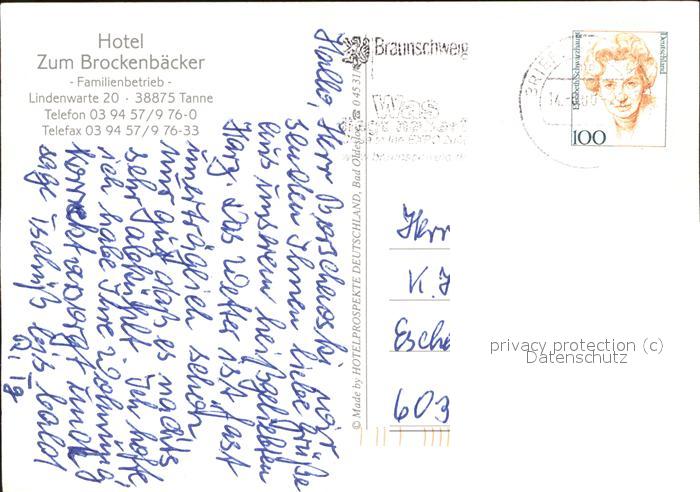 Hotel
Zum Brockenbäcker
- Familienbetrieb -
Lindenwarte 20 · 38875 Tanne
Telefon 03 94 57/9 76-0
Telefax 03 94 57/9 76-33
Hallo, Herr wir
senden Ihnen liebe Grüße
aus unserem heißgeliebten
Harz. Das Wetter ist fast
unerträglich schön
nur gut daß es nachts
sehr abkühlt. Ich hoffe,
ich habe Ihre Wohnung
korrekt versorgt und
sage Tschüß bis bald
© Made by HOTELPROSPEKTE DEUTSCHLAND, Bad Oldesloe
Braunschweig
Was
Deutschland
Elisabeth Schwarzhaupt
100
Herr
K.
Esche
603
privacy protection (c)
Datenschutz